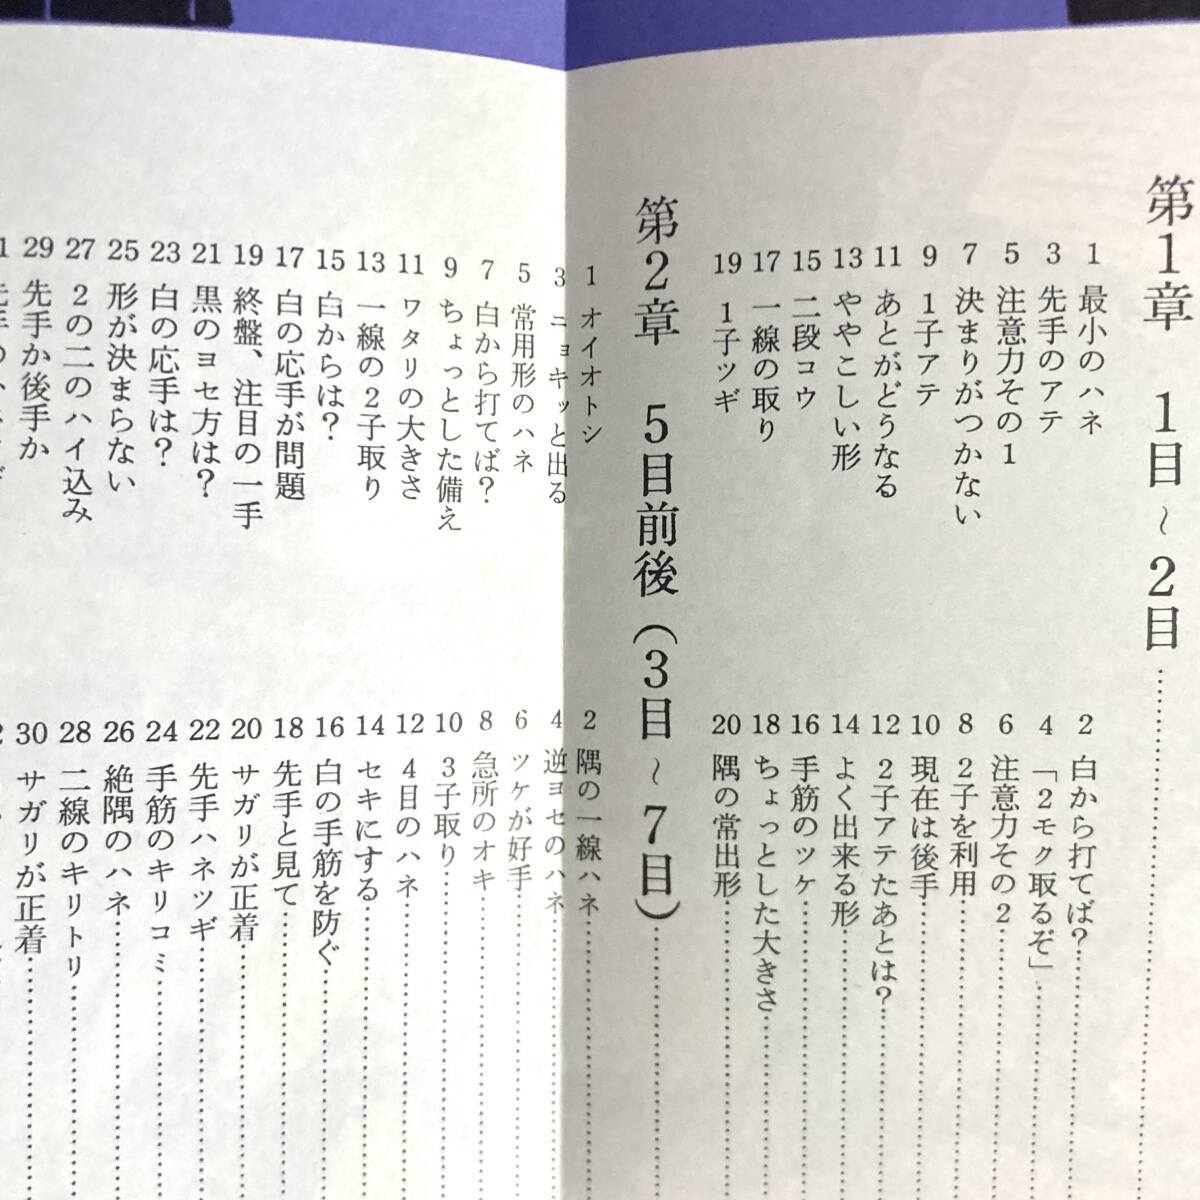 第1章　1目～2目
1 最小のハネ
2 白から打てば？
3 先手のアテ
4 「2モク取るぞ」
5 注意力その1
6 注意力その2
7 決まりがつかない
8 2子を利用
9 1子アテ
10 現在は後手
11 あとがどうなる
12 2子アテたあとは？
13 ややこしい形
14 よく出来る形
15 二段コウ
16 手筋のツケ
17 一線の取り
18 ちょっとした大きさ
19 1子ツギ
20 隅の常出形
第2章　5目前後（3目～7目）
1 オイオトシ
2 隅の一線ハネ
3 ニョキッと出る
4 逆ヨセのハネ
5 常用形のハネ
6 ツケが好手
7 白から打てば？
8 急所のオキ
9 ちょっとした備え
10 3子取り
11 ワタリの大きさ
12 4目のハネ
13 一線の2子取り
14 セキにする
15 白からは？
16 白の手筋を防ぐ
17 白の応手が問題
18 先手と見て
19 終盤、注目の一手
20 サガリが正着
21 黒のヨセ方は？
22 先手ハネツギ
23 白の応手は？
24 手筋のキリコミ
25 形が決まらない
26 絶隅のハネ
27 2の二のハイ込み
28 二線のキリトリ
29 先手か後手か
30 サガリが正着